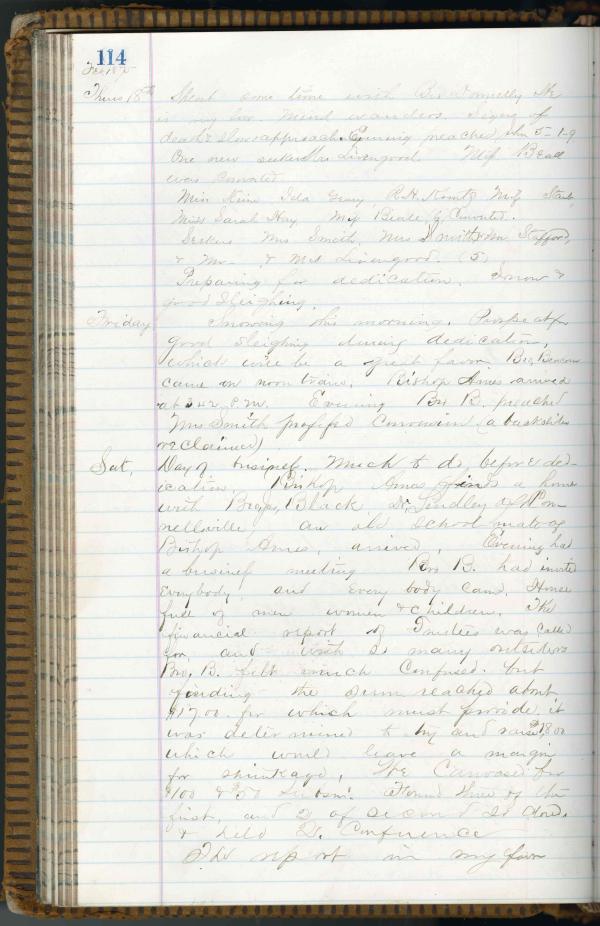 114
Feb 1875
Thurs 18th Spent some time with Bro Donnelly. He
is very low. Mind wanders. Signs of
death's slow approach. Evening preached
One new seeker Mrs Livengood. Miss Beall
was Converted.
Miss Ida R. H. Koontz
Miss Sarah Hay, Miss Beale Converted.
Seekers Mrs Smith, Mrs Smith
& Mr. & Mrs Livengood. (5)
Preparing for dedication. Snow &
good sleighing.
Friday Snowing this morning. Prospect for
good sleighing during dedication,
which will be a great favor. Bro,
came on noon train. Bishop Ames arrived
at 342 P.M. Evening Bro B. preached
Mrs Smith professed Conversion (a backslider
reclaimed)
Sat, Day of business. Much to do before ded-
ication, Bishop Ames finds a home
with Black. Dr. Lindley of Con-
nellsville an old School mate of
Bishop Ames, arrived, Evening had
a business meeting Bro B. had invited
Everybody, and Every body came, House
full of men women & children. The
financial report of Trustees was called
for, and with so many outsiders
Bro, B. felt much Confused. but
finding the sum reached about
$1700. for which must provide, it
was determined to try and raise $1800
which would leave a margin
for shrinkage, We Canvased for
$100 & $50 Found three of the
first, and 2 of second So closed,
& held Q. Conference
The report in my favor